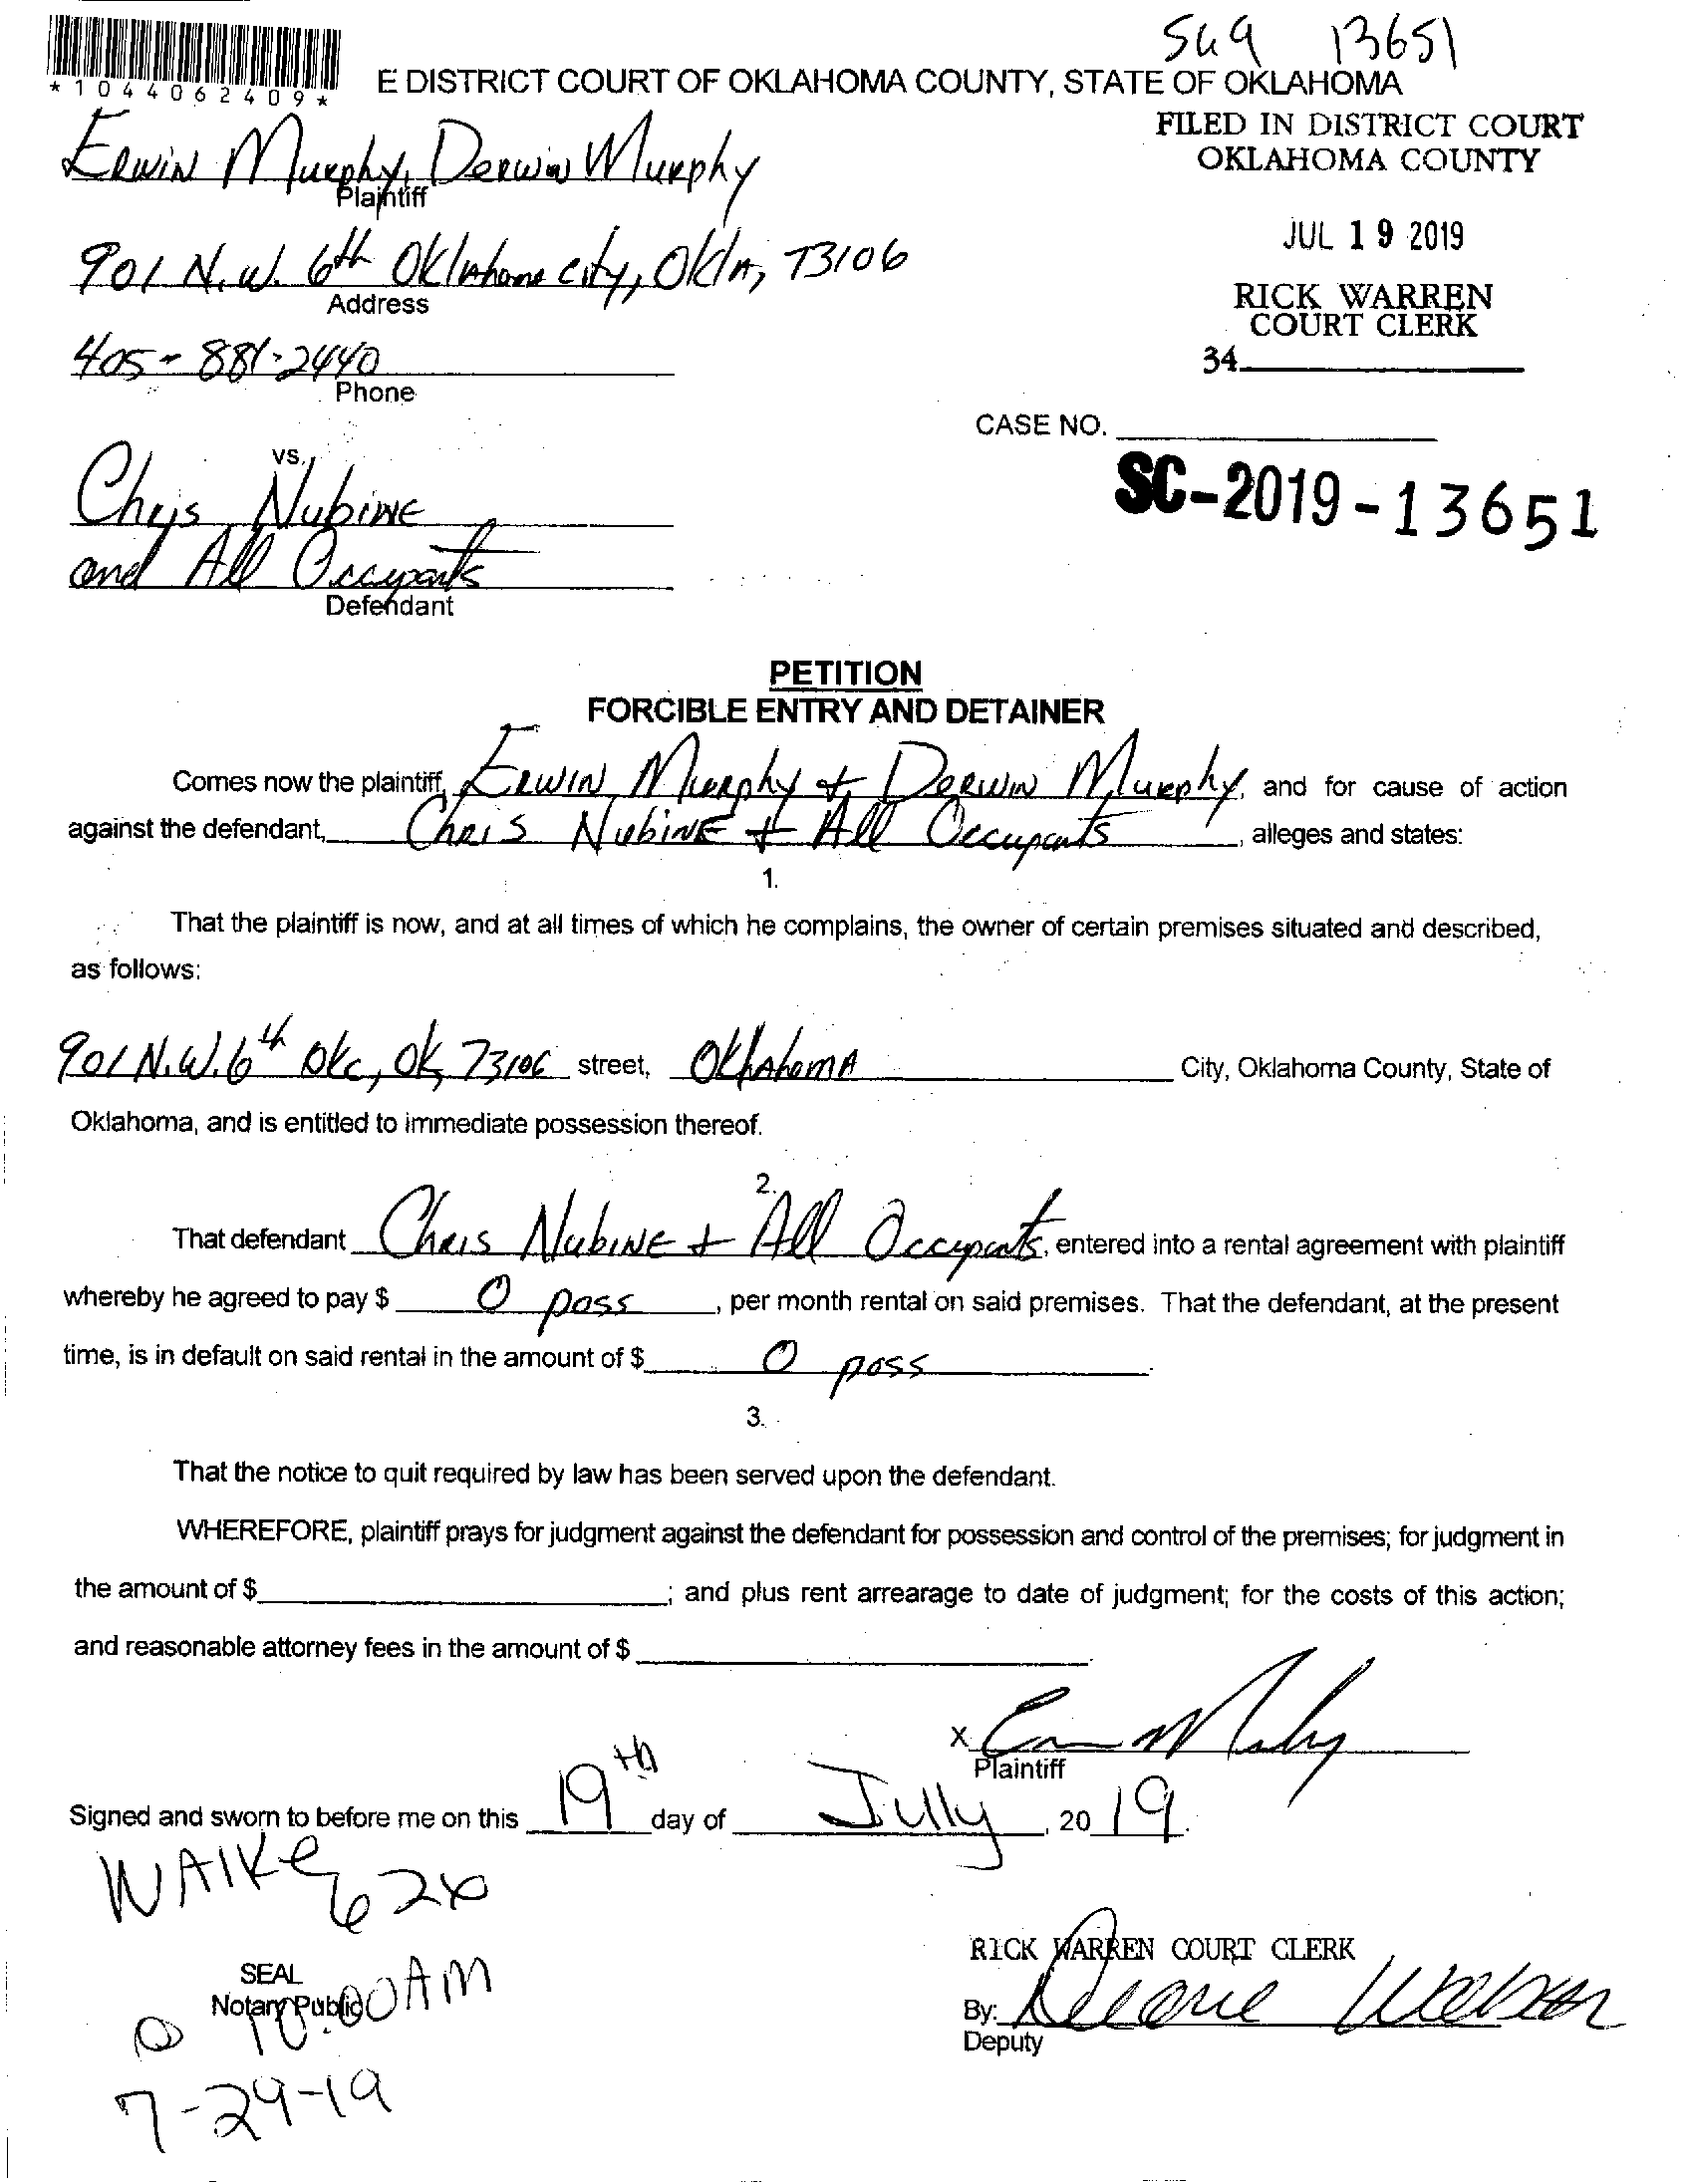 SU9 13651
*1044062409*
E DISTRICT COURT OF OKLAHOMA COUNTY, STATE OF OKLAHOMA
FILED IN DISTRICT COURT
OKLAHOMA COUNTY
ERWIN Murphy, DERWIN Murphy
Plaintiff
JUL 19 2019
901 N.W. 6th Oklahoma city, Okla, 73106
Address
RICK WARREN
COURT CLERK
34
405-881-2440
Phone
CASE NO.
SC-2019-13651
vs.
Chris Nubine
and All Occupants
Defendant
PETITION
FORCIBLE ENTRY AND DETAINER
Comes now the plaintiff, ERWIN Murphy + DERWIN Murphy, and for cause of action
against the defendant, Chris NubiNE + All Occupants, alleges and states:
1.
That the plaintiff is now, and at all times of which he complains, the owner of certain premises situated and described,
as follows:
901 N.W. 6th Okc, Ok, 73106 street, OklAhomA City, Oklahoma County, State of
Oklahoma, and is entitled to immediate possession thereof.
2.
That defendant Chris NubiNE + All Occupants, entered into a rental agreement with plaintiff
whereby he agreed to pay $ 0 poss, per month rental on said premises. That the defendant, at the present
time, is in default on said rental in the amount of $ 0 poss.
3.
That the notice to quit required by law has been served upon the defendant.
WHEREFORE, plaintiff prays for judgment against the defendant for possession and control of the premises; for judgment in
the amount of $ ; and plus rent arrearage to date of judgment; for the costs of this action;
and reasonable attorney fees in the amount of $ .
X
Plaintiff
Signed and sworn to before me on this 19th day of Jully, 2019.
RICK WARREN COURT CLERK
SEAL
Notary Public
@ 10:00AM
By:
Deputy
7-29-19